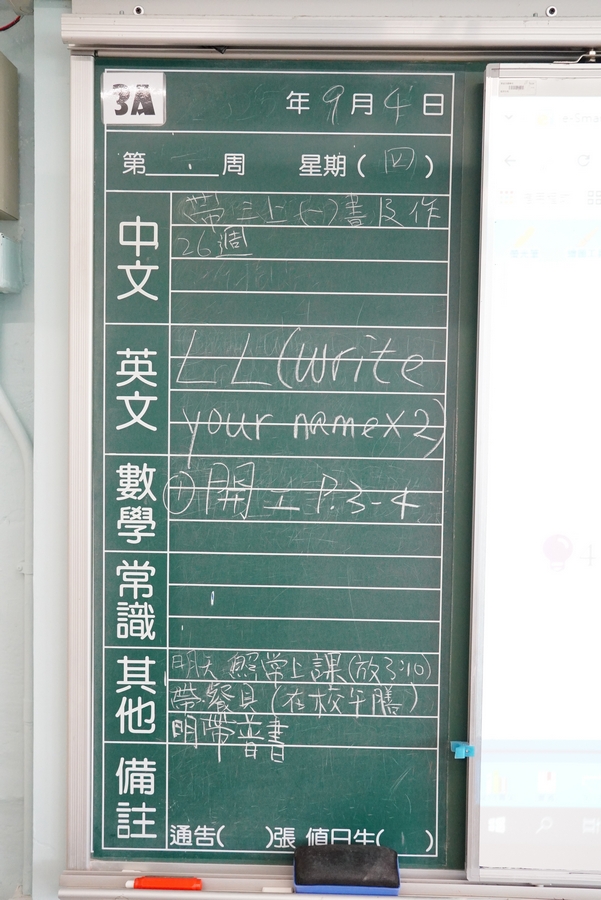 3A
年 9 月 4 日
第 周 星期 ( 四 )
中文
帶 上 (一) 書 及 作
26週
英文
LL (write
your name x2)
數學
① 開工 P.3-4
常識
其他
明天照常上課(放3:10)
帶餐具(在校午膳)
明帶普書
備註
通告( )張 值日生( )